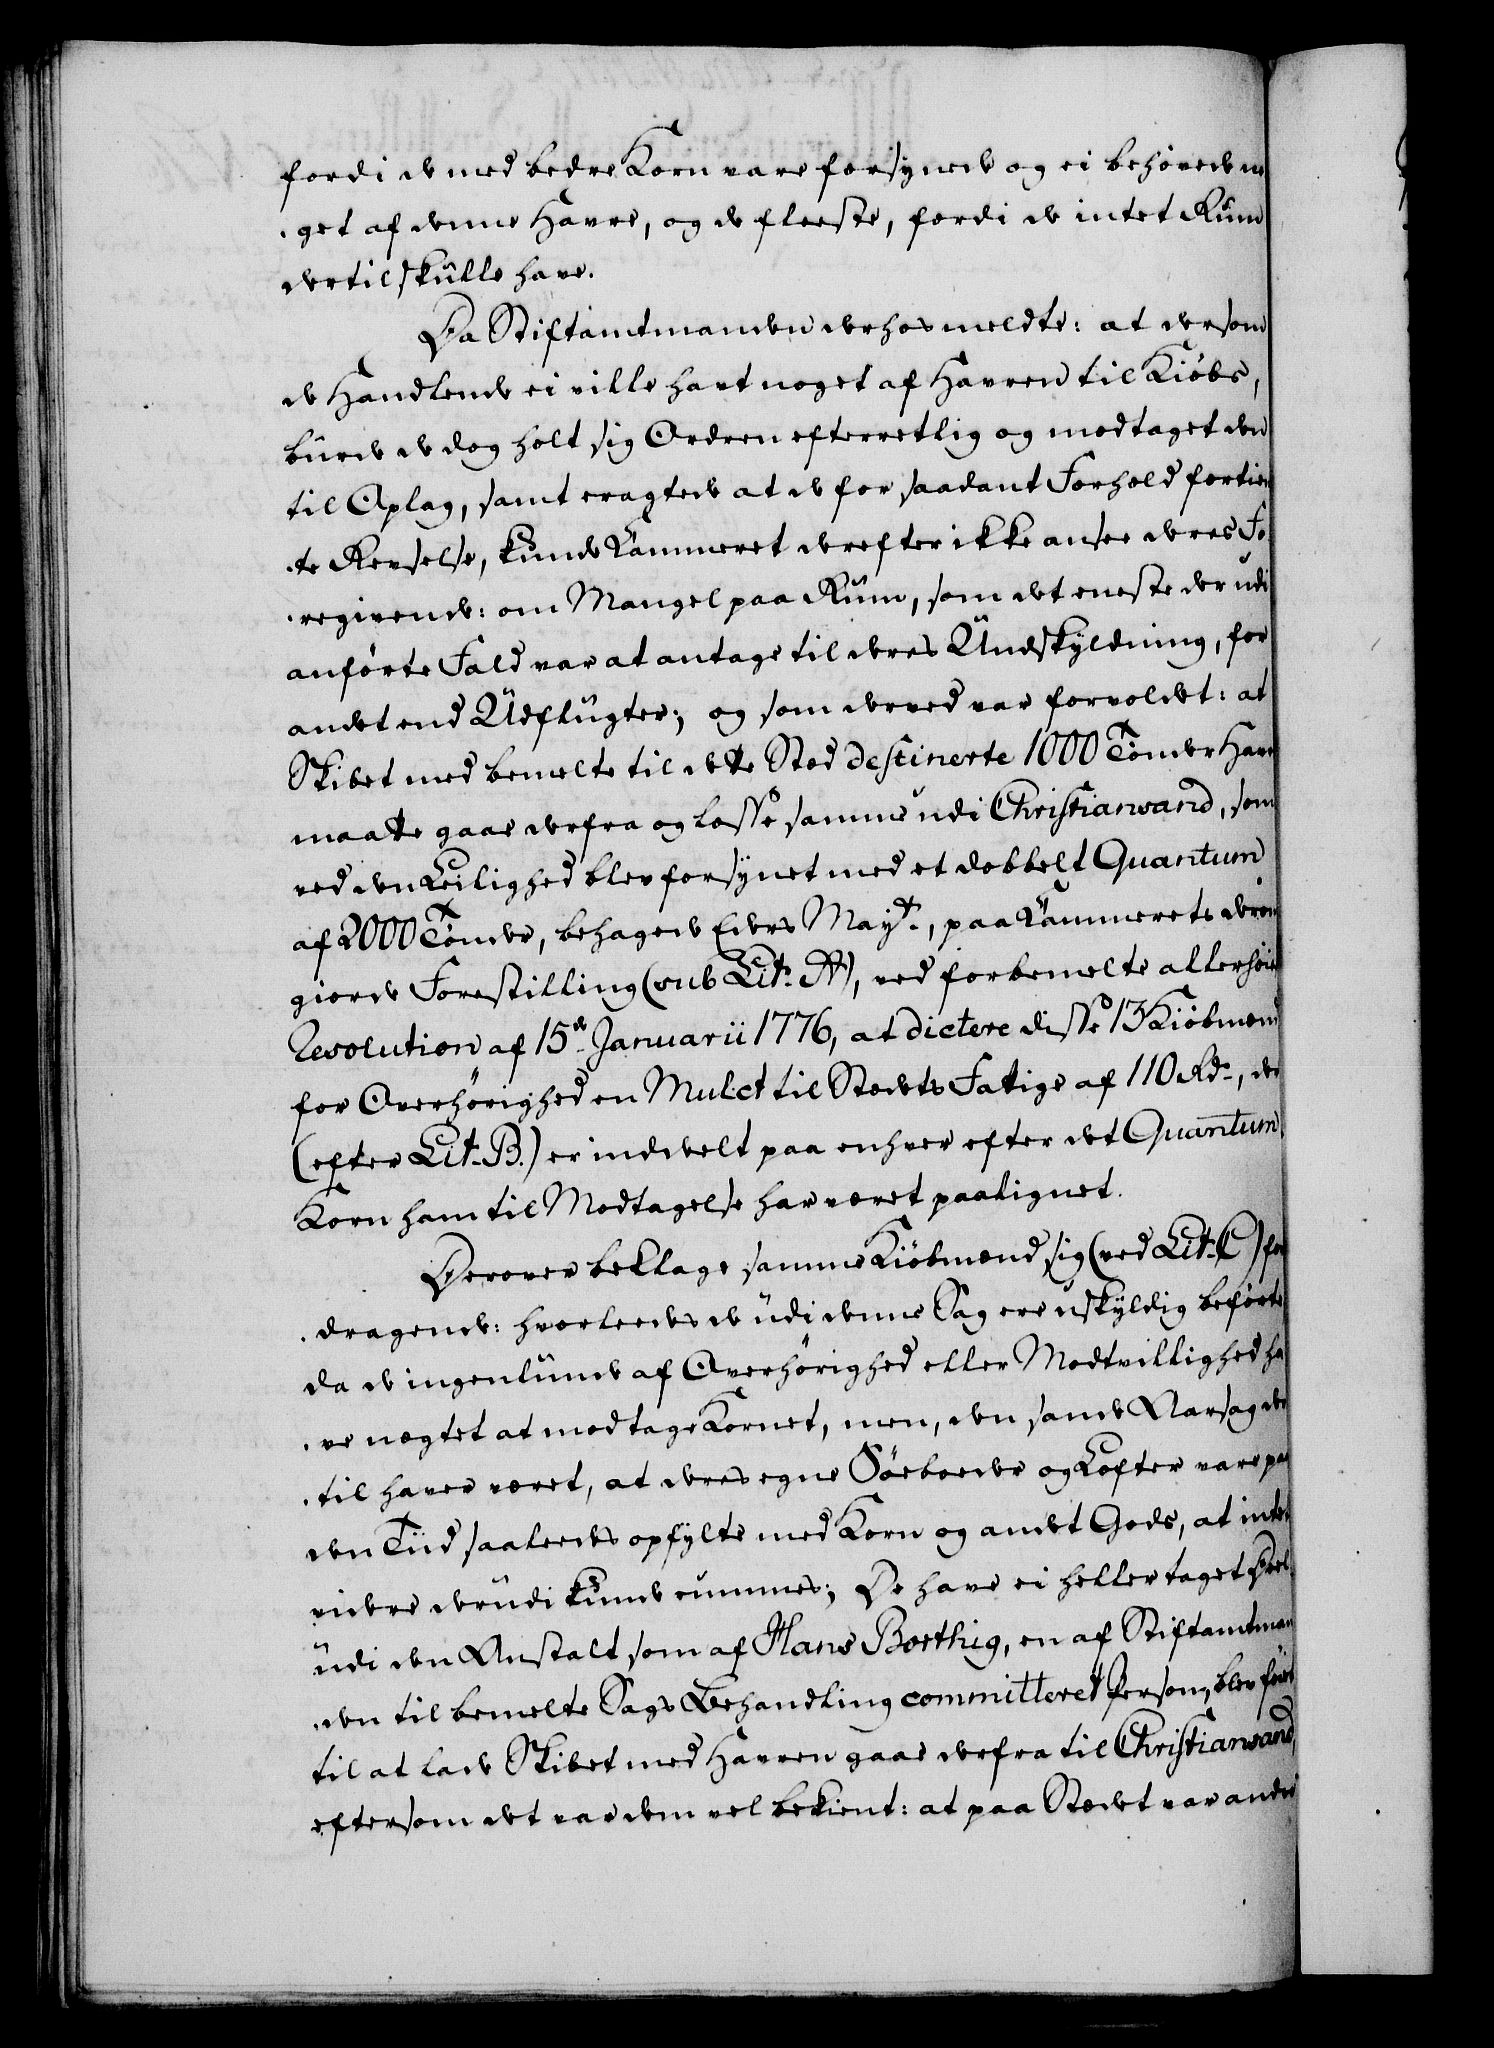 fordi de med bedre Korn vare forsynede og ei behøvede no
-get af denne Havre, og de fleeste, fordi de intet Rum
dertil skulle have.
Da Stiftamtmanden derhos meldte: at dersom
de Handlende ei ville havt noget af Havren til Kiøbs,
burde de dog holt sig Ordren efterretlig og modtaget den
til Oplag, samt eragtede at de for saadant Forhold fortien
-te Revselse, kunde Kammeret derefter ikke ansee deres Fo
-regivende: om Mangel paa Rum, som det eneste der udi
anførte Fald var at antage til deres Undskyldning, for
andet end Udflugter; og som derved var forvoldet: at
Skibet med bemelte til dette Sted destinerte 1000 Tønder Havre
maatte gaae derfra og losse samme udi Christiansand, som
ved den Leilighed blev forsynet med et dobbelt Quantum
af 2000 Tønder, behagede Eders Mayt., paa Kammerets derom
giorde Forestilling (sub Lit. A), ved forbemelte allerhøieste
Resolution af 15de Januarii 1776, at dictere disse 13 Kiøbmænd
for Overhørighed en Mulct til Stedets Fattige af 110 Rd., der
(efter Lit. B.) er inddeelt paa enhver efter det Quantum
Korn ham til Modtagelse har været paalignet.
Derover beklage samme Kiøbmænd sig (ved Lit. C) for
-dragende: hvorledes de udi denne Sag ere uskyldig beførte
da de ingenlunde af Overhørighed eller Modtvillighed ha
-ve nægtet at modtage Kornet, men, den sande Aarsag der
-til haver været, at deres egne Søeboeder og Lofter vare paa
den Tiid saaledes opfylte med Korn og andet Gods, at intet
videre derudi kunde rummes; De have ei heller taget Deel
udi den Anstalt som af Hans Boethig, en af Stiftamtman
-den til bemelte Sags Behandling committeret Person, blev føiet
til at lade Skibet med Havren gaae derfra til Christiansand,
eftersom det var dem vel bekient: at paa Stedet var andre